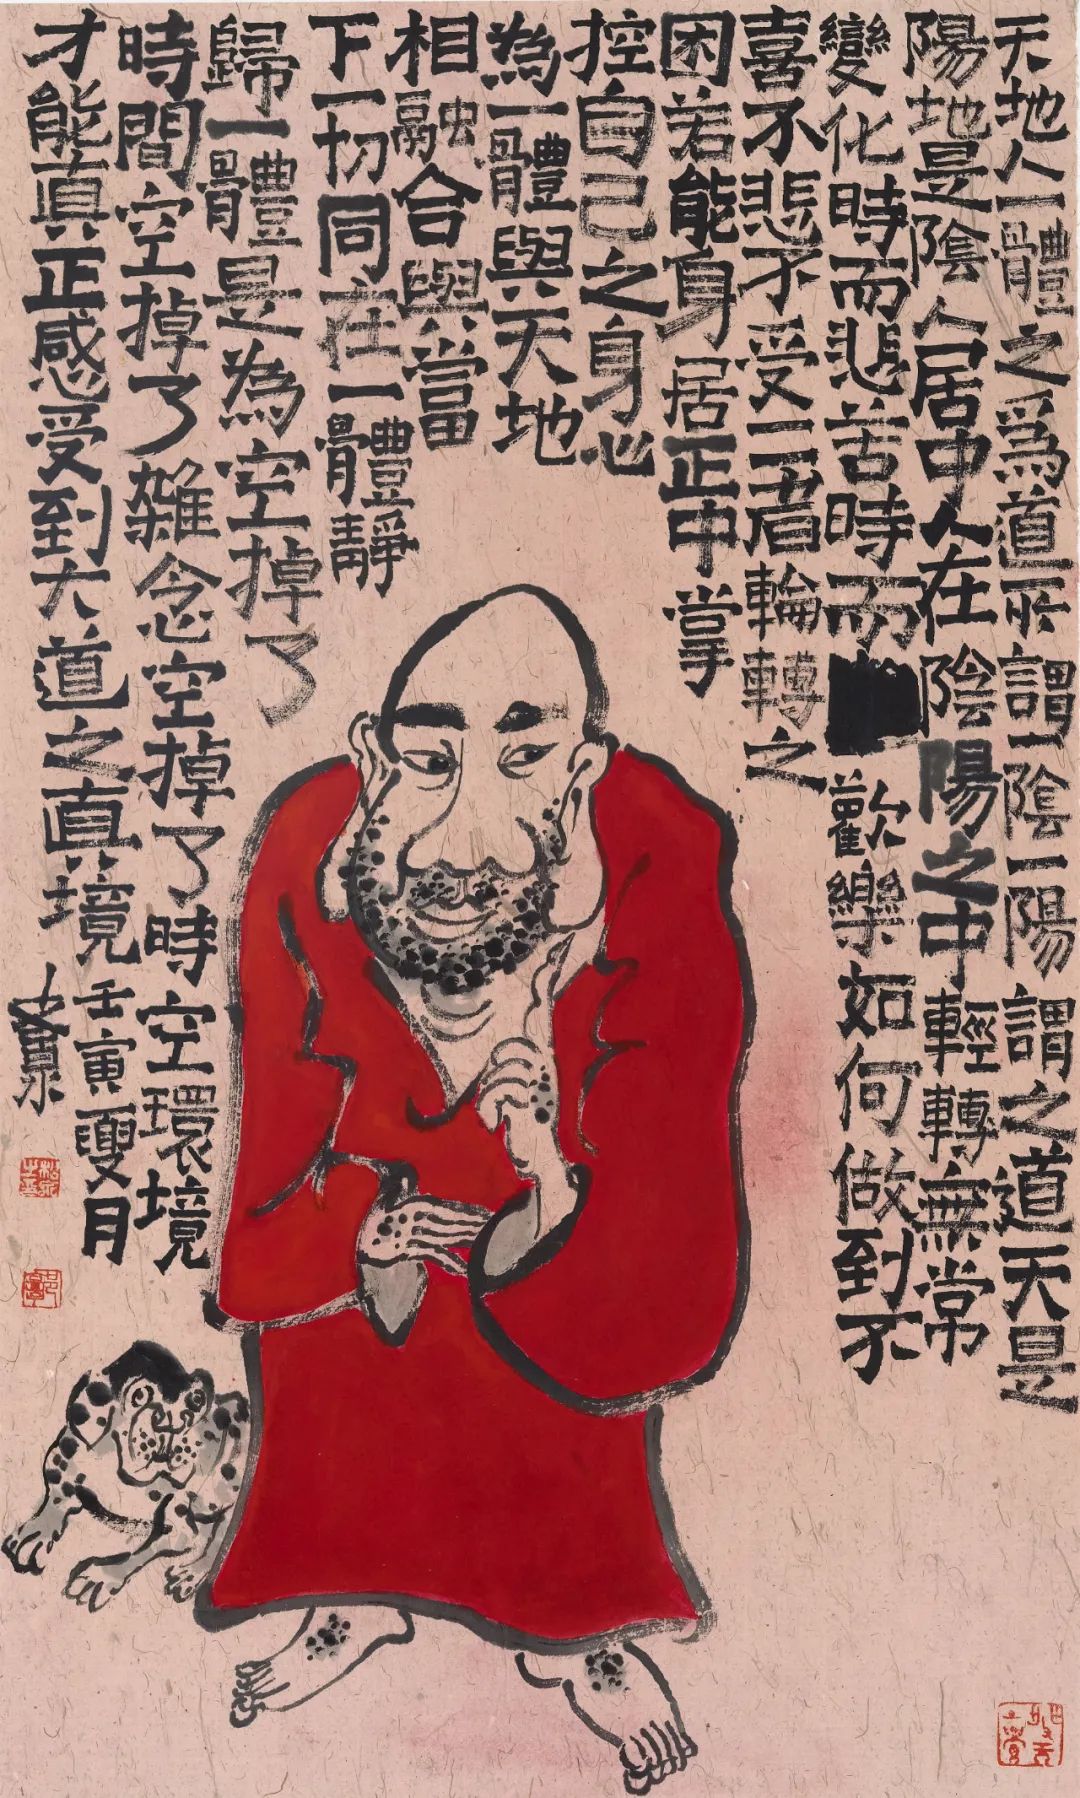 天地人一體之爲道所謂一陰一陽謂之道天是
陽地是陰人居中人在陰陽之中輕轉無常
變化時而悲苦時而歡樂如何做到不
喜不悲不受二者輪轉之
困若能身居正中掌
控自己之身心
為一體與天地
相融合與當
下一切同在一體靜
歸一體是為空掉了
時間空掉了雜念空掉了時空環境
才能真正感受到大道之真境
壬寅夏月